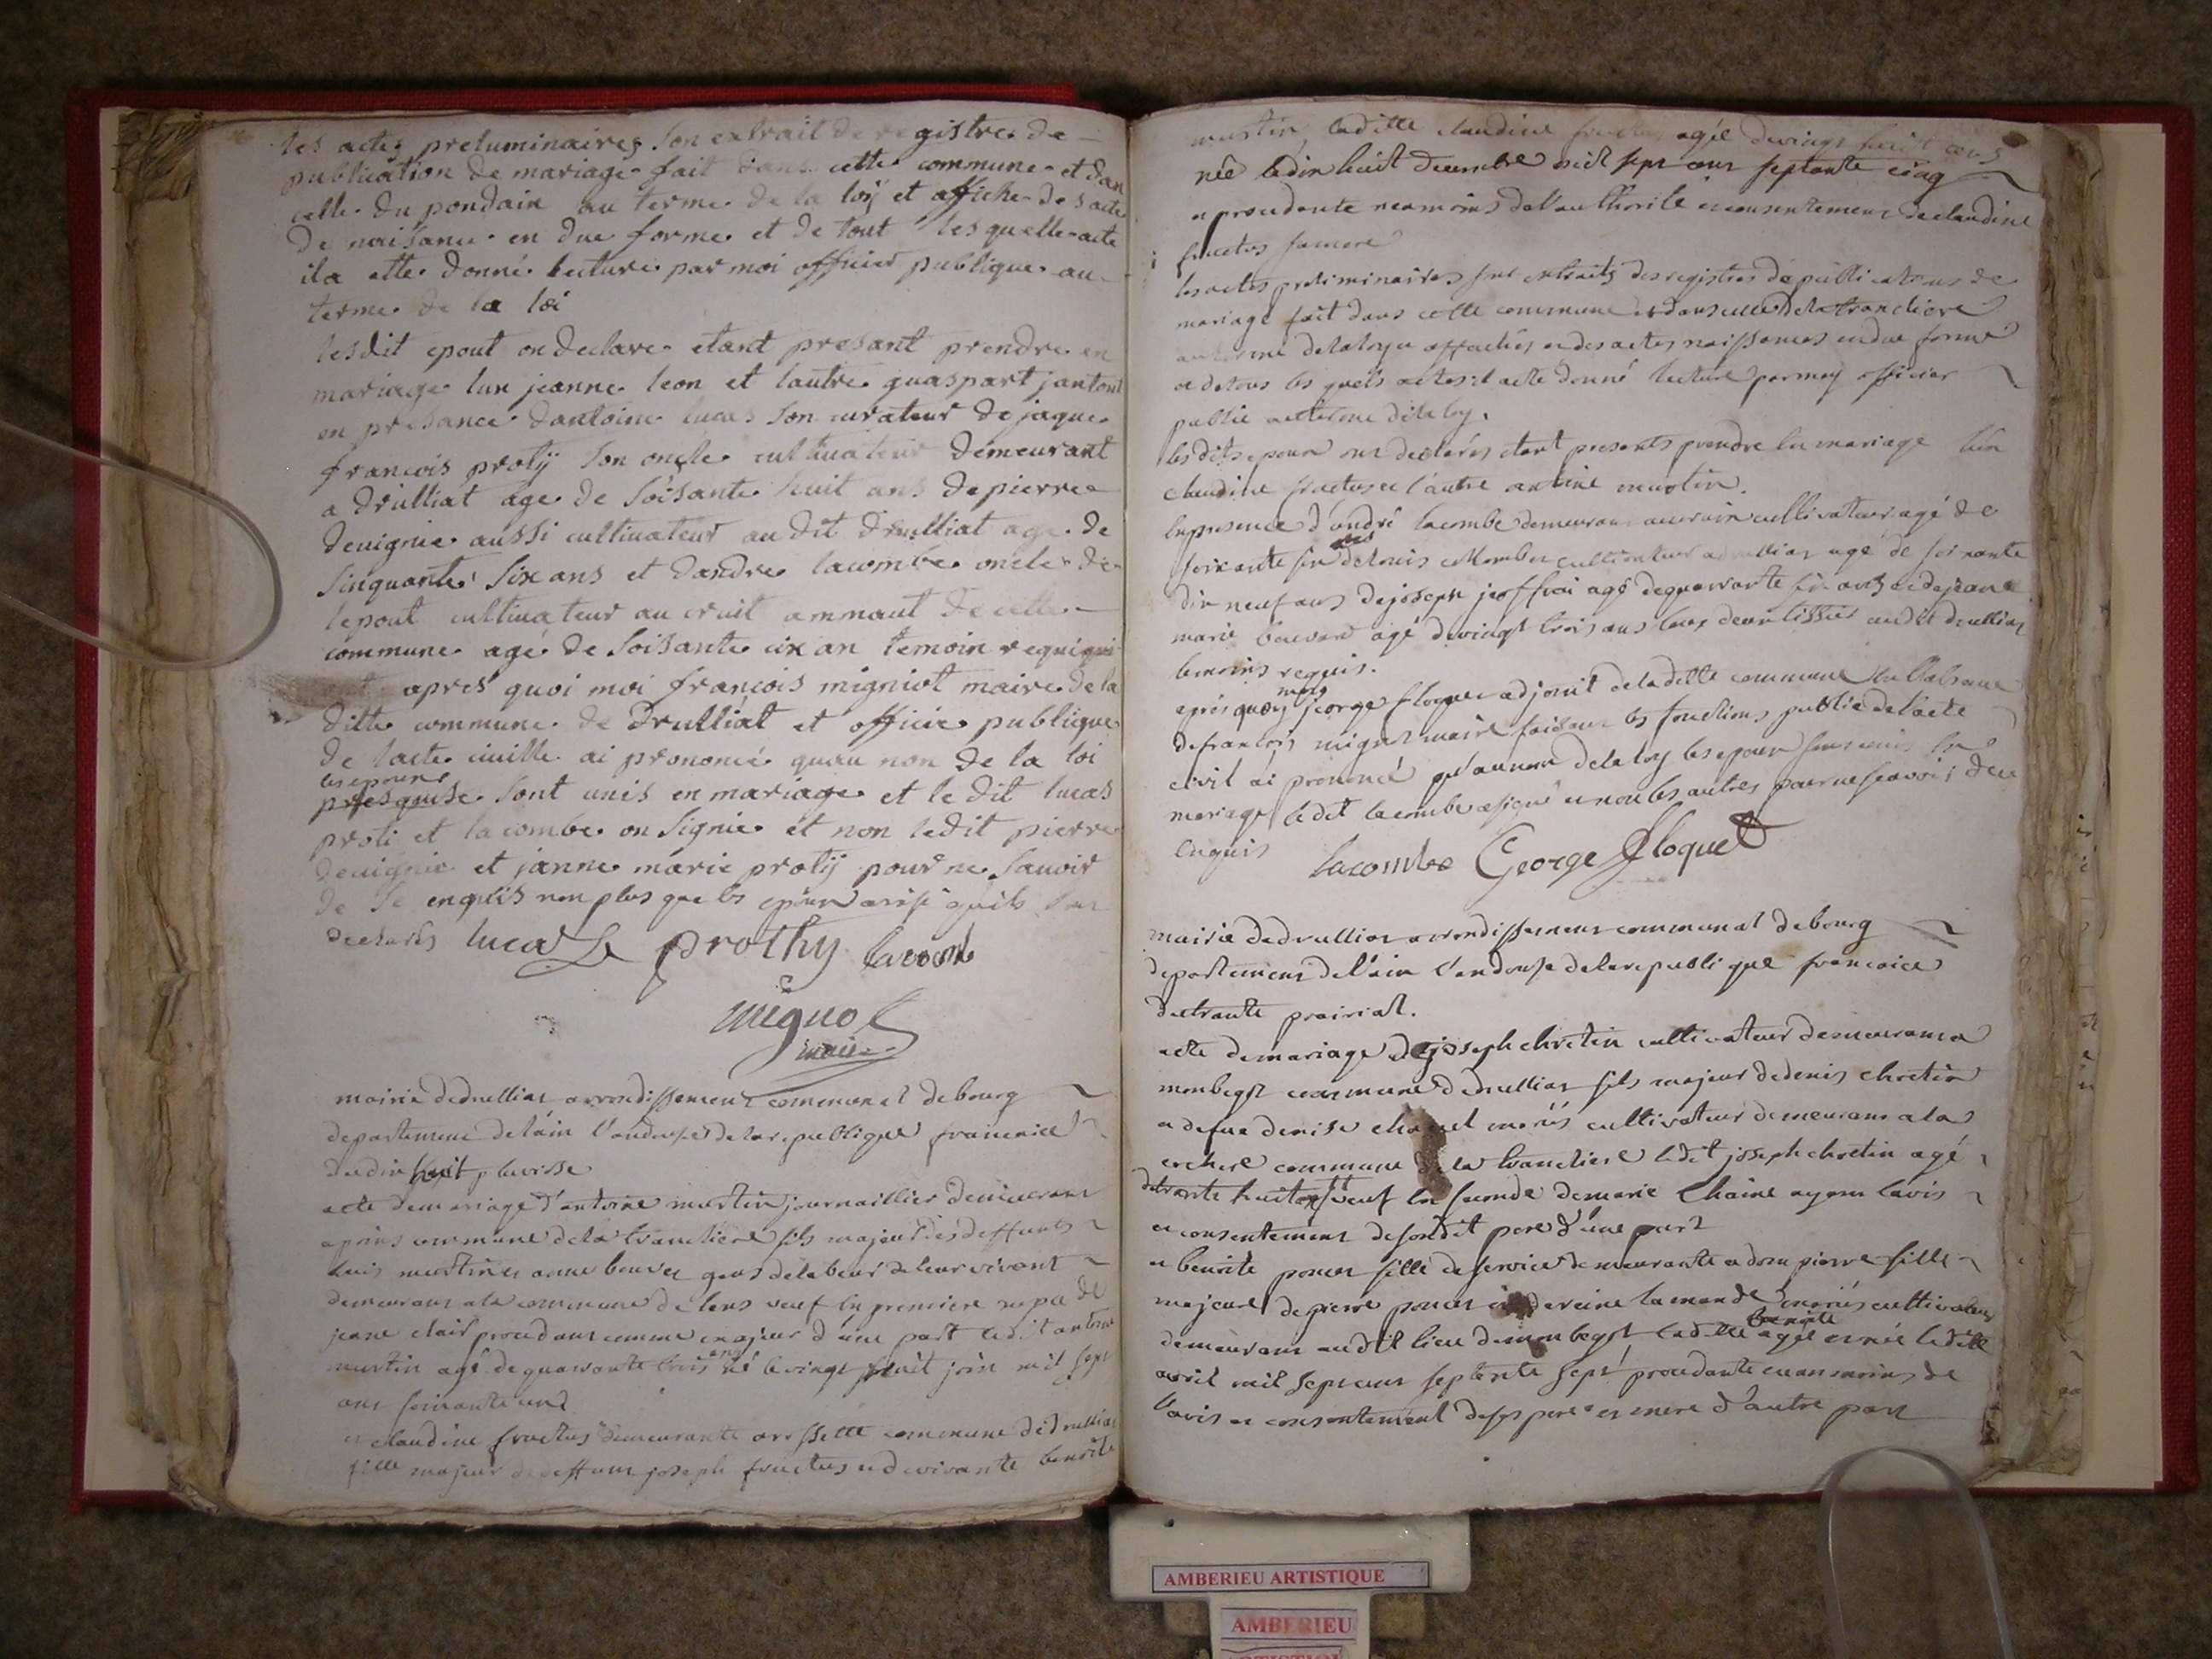 les actes preluminaires son extrait de registre de
publication de mariage fait dans cette commune et dan
celle du pondain au terme de la loÿ et affiche des acte
de naisance en due forme et de tout lesquelle acte
il a ette donné lecture par moi officier publique au
terme de la loi
lesdit epout on declare etant presant prendre en
mariage lun jeanne leon et lautre guaspart jantout
en presance dantoine lucas son curateur de jaque
francois protÿ son oncle cultivateur demeurant
a drulliat age de soisante huit ans de pierre
devignie aussi cultivateur au dit drulliat age de
sinquante six ans et dandre lacombe oncle de
lepout cultivateur au cruit ammaut de cette
commune agé de soisante cix an temoin requi
apres quoi moi françois migniot maire de la
ditte commune de Drulliat et officie publique
de lacte civille ai prononcé quau non de la loi
les epoux
sont unis en mariage et le dit lucas
proti et lacombe on signie et non ledit pierre
devignie et janne marie protij pour ne savoir
de se enquis non plus que les epoux
declarés lucas prothy lacombe
mignot
maire
mairie de drulliat arrondissement communal de bourg
departement de lain l'an douse de la republique francaice
du dix huit pluviose
acte de mariage d'antoine murtin journaillier demeurant
a prins commune de la tranchiere fils majeur des deffunts
louis murtin et anne bouvet gens de labeur de leur vivant
demeurant a la commune de lens veuf en premiere nopce de
jeane clair procedant comme majeur d'une part ledit antoine
ans
murtin agé de quarante trois né le vingt huit join mil sept
ans soixante un
et claudine fructus demeurante a rossette commune de drulliat
fille majeur de deffunt joseph fructus et de vivante benoite
murtin, ladite claudine fructus agée de vingt huit ans
née le dix huit decembre mil sept ans septante cinq
et procedante neanmoins de l'authorité et consentement de claudine
fructus sa mere
les actes preliminaires sont extraits des registres de publications de
mariage fait dans cette commune et dans celle de la tranchiere
au terme de la loy et affichés et des actes naissances en due forme
et de tous les quels actes il a ete donné lecture par moy officier
public au terme de la loy.
les dits epoux ont declarés etant presents prendre en mariage l'un
claudine fructus et l'autre antoine murtin.
en presence d'andré lacombe demeurant au cruix cultivateur agé de
ans
soixante six de louis collombet cultivateur a drulliat agé de soixante
dix neuf ans de joseph jeoffrai agé de quarante six ans et de jeane
marie bouvard agé de vingt trois ans tous deux tissier au dit drulliat
temoins requis.
moy
après quoy jeorge floquet adjoint de la ditte commune en l'absance
de françois mignot maire faisant les fonctions public de l'acte
civil ai prononcé qu'au nom de la loy les epoux sont unis en
mariage le dit lacombe a signé et non les autres pour ne sçavoir de ce
enquis lacombe George floquet
mairie de drulliat arrondissement communal de bourg
departement de l'ain l'an douse de la republique francaice
du trante prairial.
acte de mariage de joseph chretin cultivateur demeurant a
monbegst commune de drulliat fils majeur de denis chretin
et de fue denise mariés cultivateur demeurant a la
commune de la tranchiere ledit joseph chretin agé
de trante huit veuf en seconde de marie Chaine ayant l'avis
et consentement de son dit pere d'une part
et benoite poncet fille de service demeurante a dom pierre fille
majeure de pierre poncet et de reine lamande mariés cultivateurs
benoite
demeurant au dit lieu de monbegst ladite agée et née le dix
avril mil sept cent septente sept procedante neanmoins de
l'avis et consentement de ses pere et mere d'autre part
AMBERIEU ARTISTIQUE
AMBERIEU